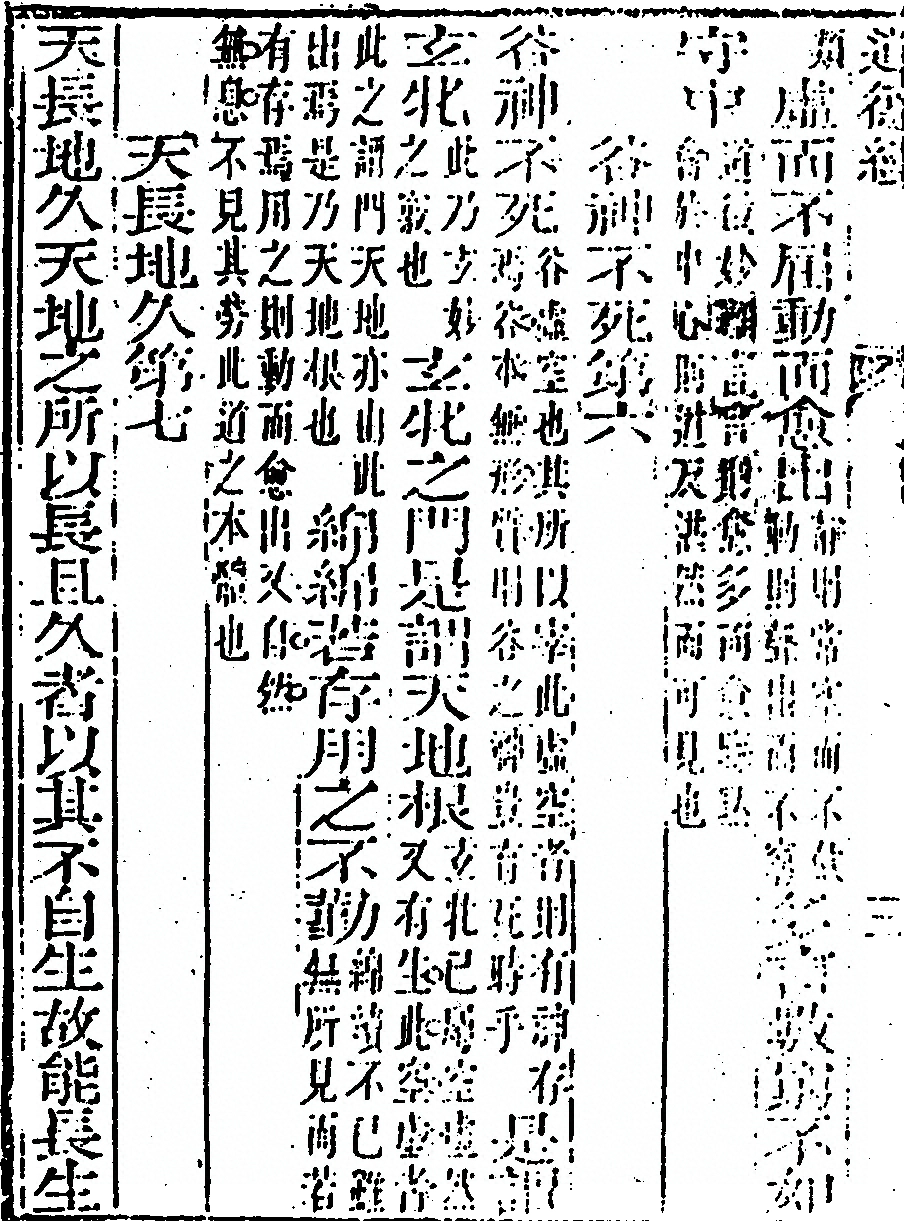 道德經
三
類虛而不屈動而愈出靜則常空而不動則群出而不窮多言數窮不如
守中道後妙言言多而會於中心則道及然而可見也
谷神不死第六
谷神不死谷虛空也其所以宰此虛空者則有神存焉谷本無形質則谷之神豈有死時乎是謂
玄牝此乃玄妙之竅也玄牝之門是謂天地根玄牝已屬空虛然又有生此空虛者
此之謂門天地亦由此出焉是乃天地根也綿綿若存用之不勤綿綿不已雖無所見而若
有存焉用之則動而愈出又自然
無息不見其勞此道之本體也
天長地久第七
天長地久天地之所以長且久者以其不自生故能長生